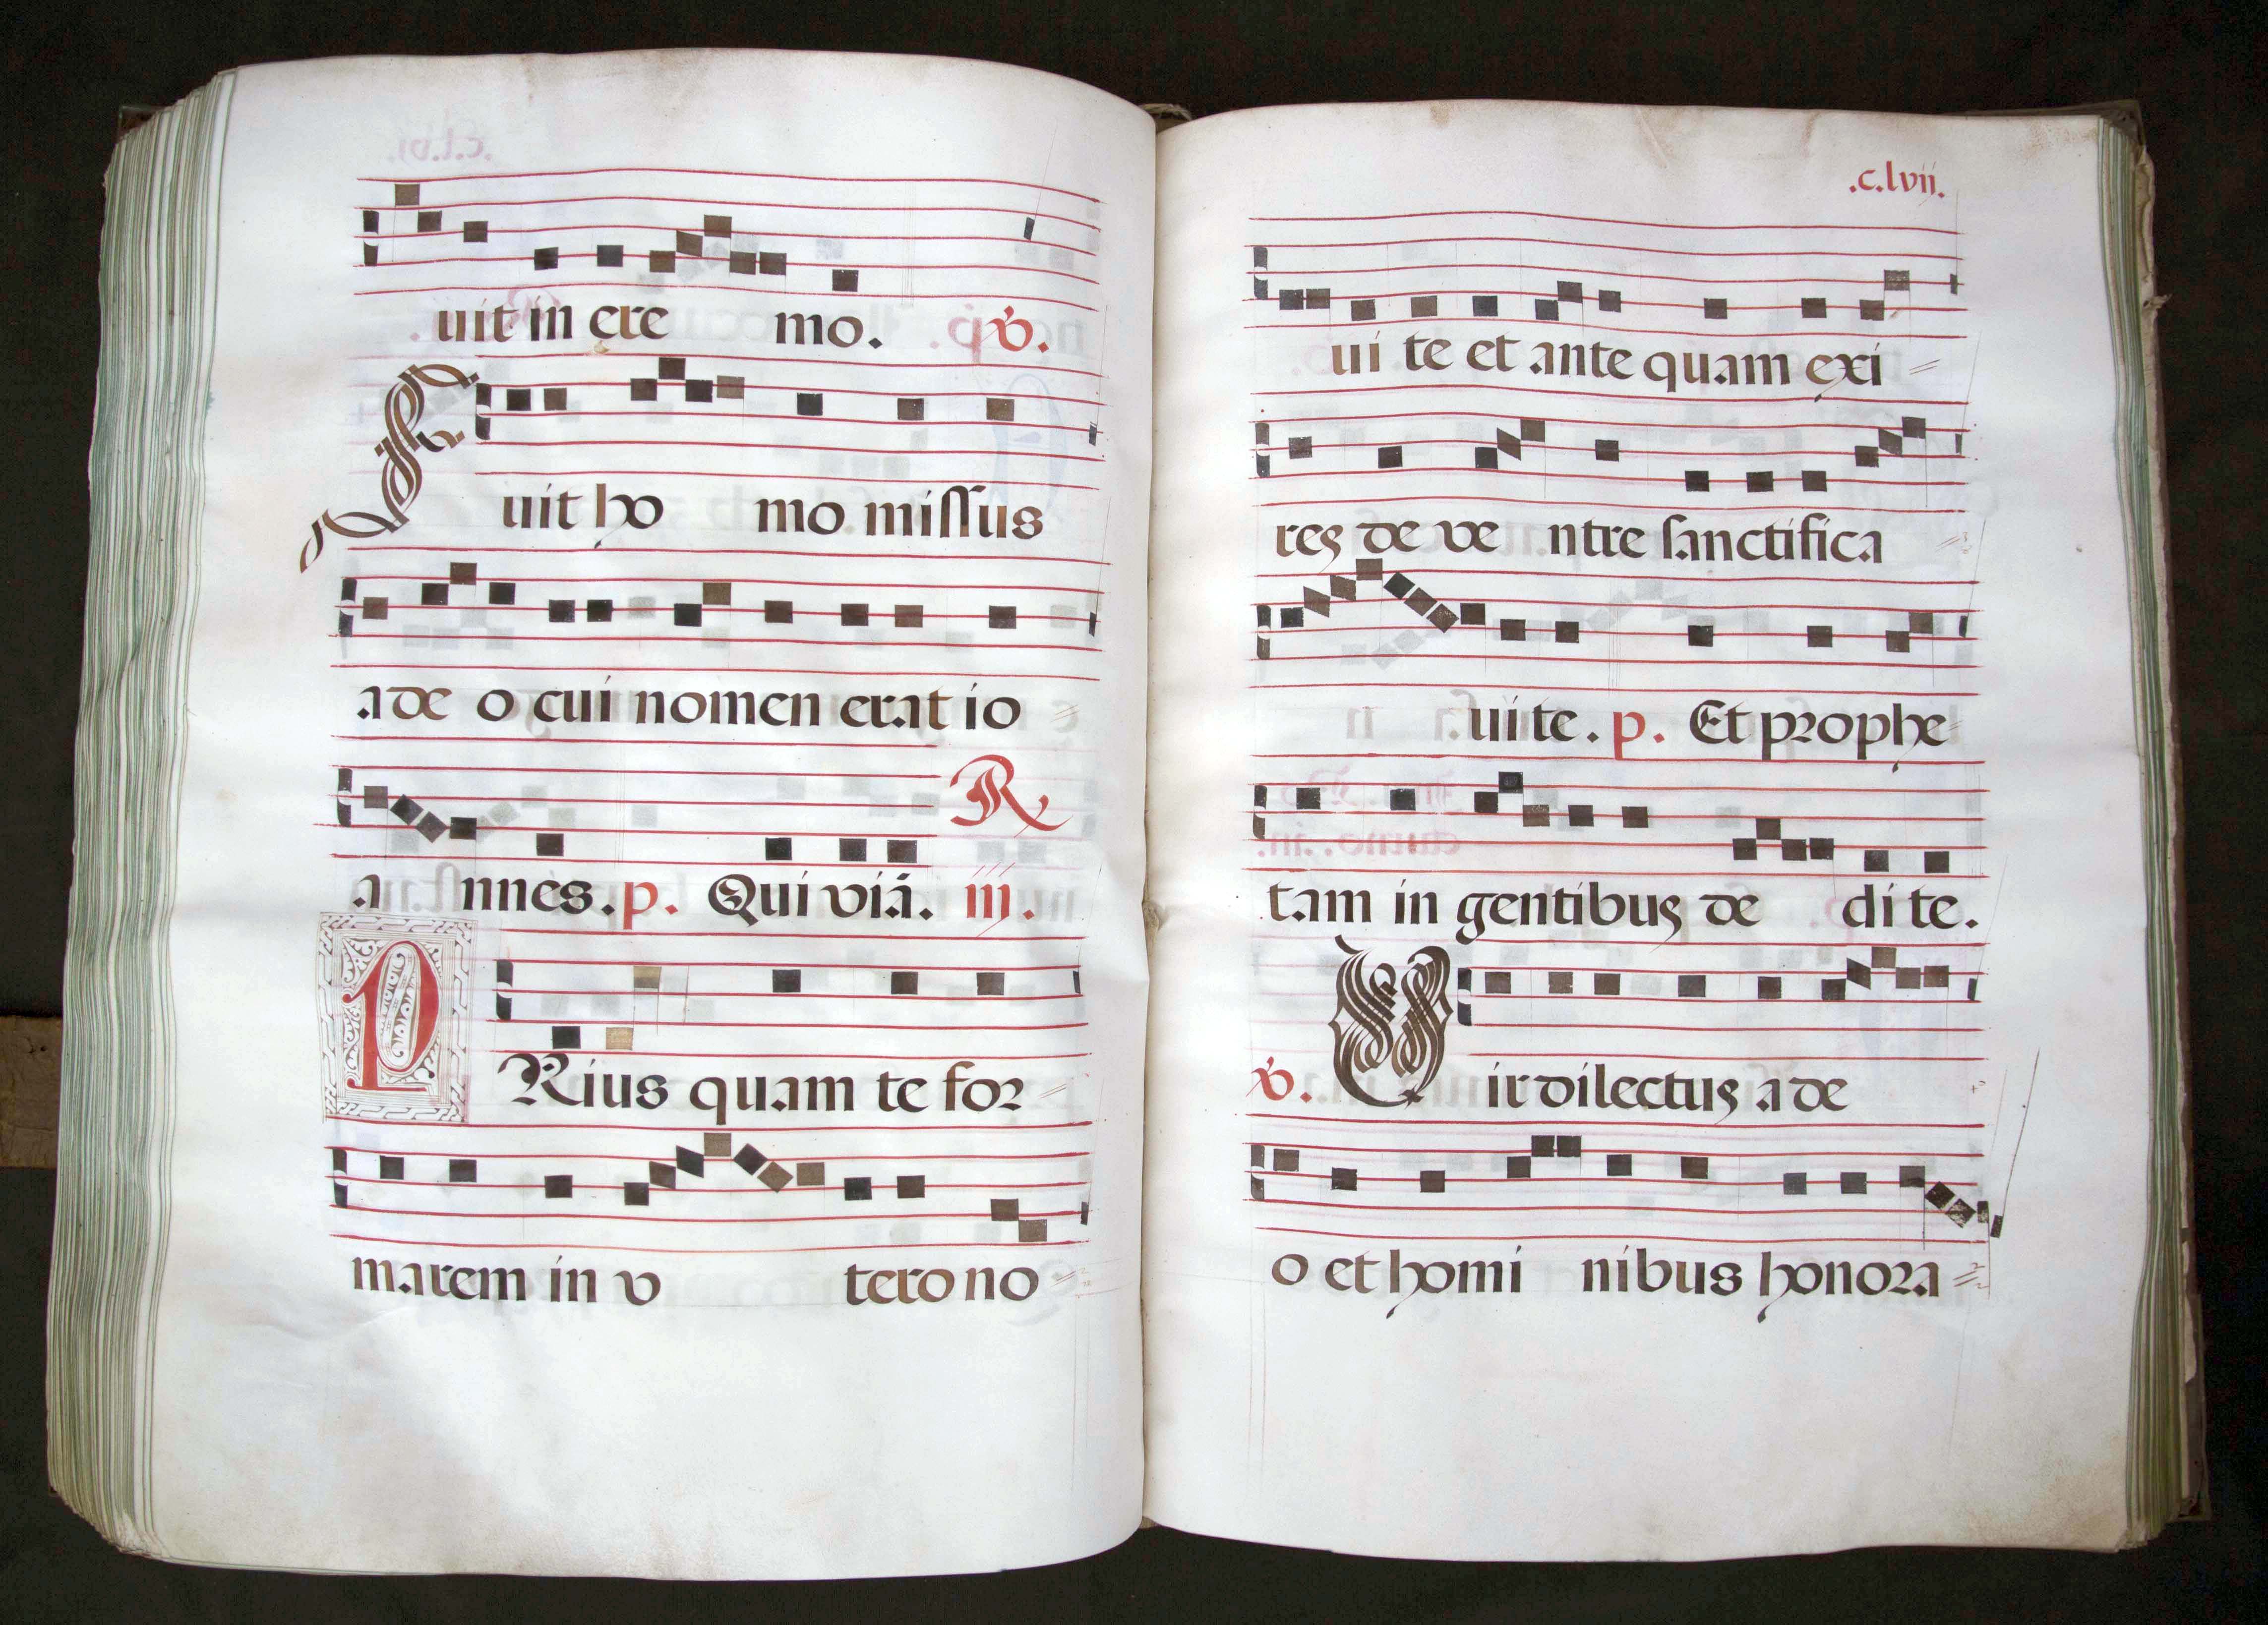 uit in ere mo. ℣.
Fuit ho mo missus
a de o cui nomen erat io
℟
a nnes. p. Qui viā. iij.
PRius quam te for
marem in v tero no
.c.lvij.
ui te et ante quam exi
res de ve ntre sanctifica
ui te. p. Et prophe
tam in gentibus de di te.
℣. Vir dilectus a de
o et homi nibus honora